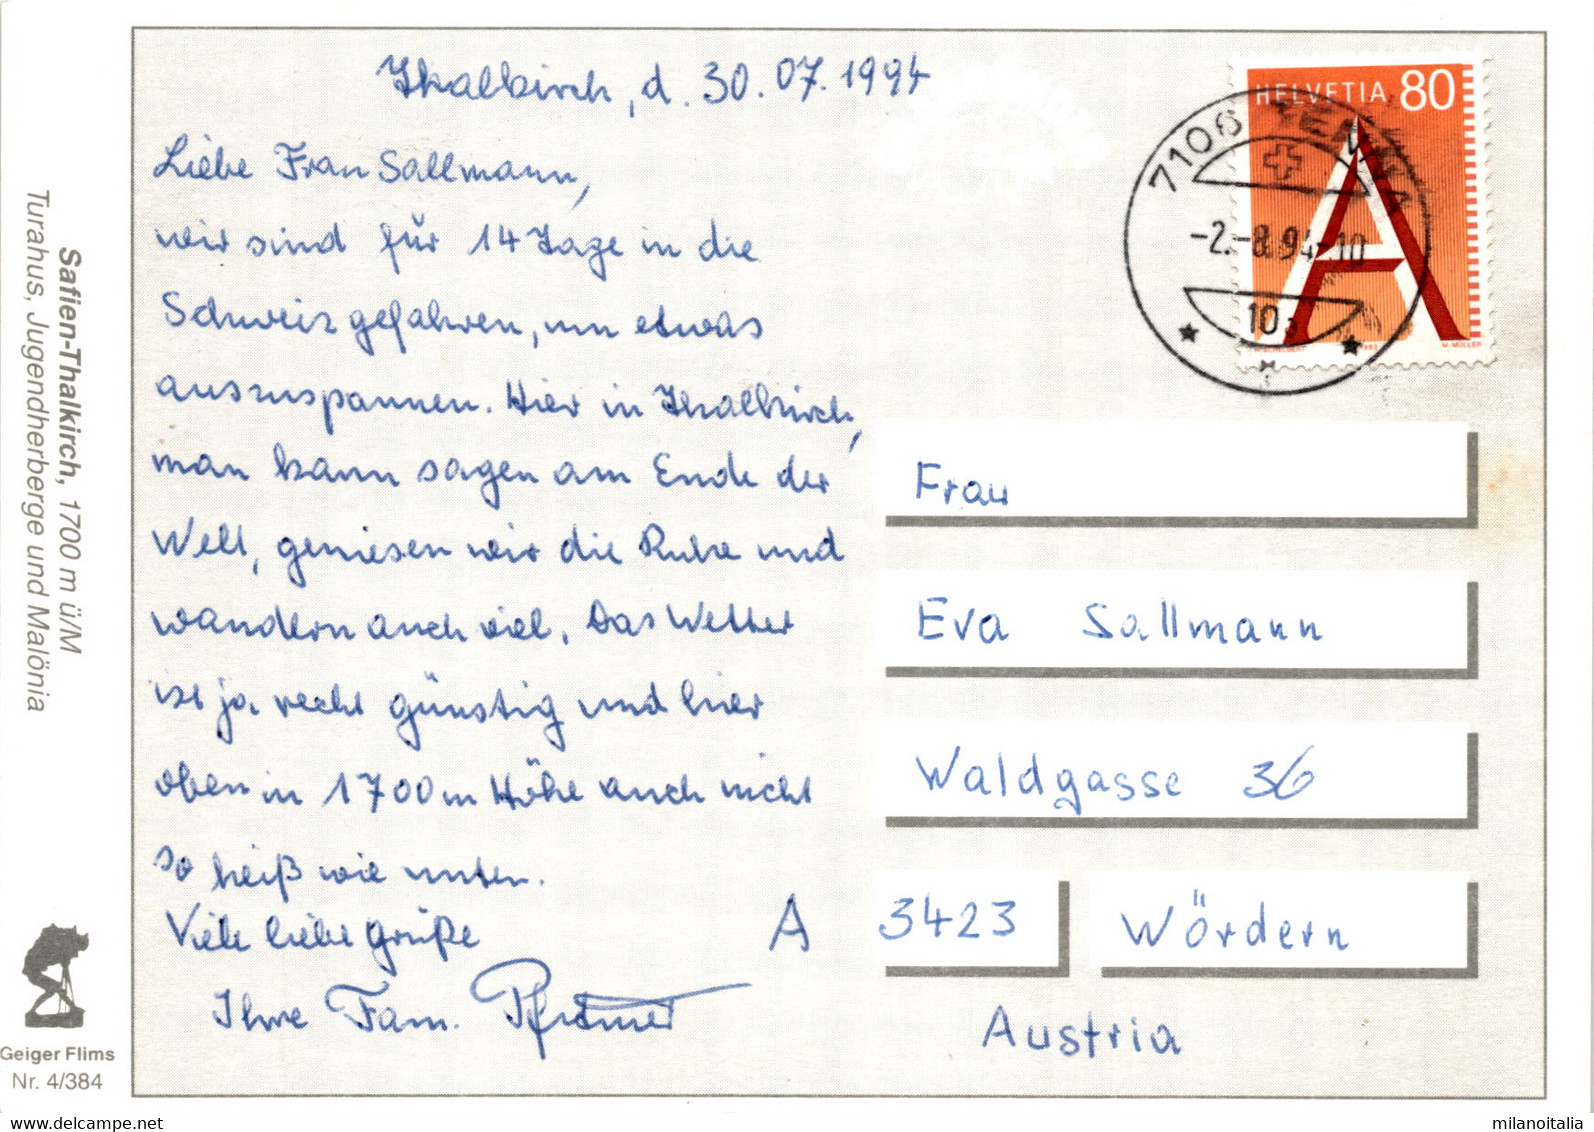 Thalkirch, d. 30.07.1994
Liebe Frau Sallmann,
wir sind für 14 Tage in die
Schweiz gefahren, um etwas
auszuspannen. Hier in Thalkirch,
man kann sagen am Ende der
Welt, geniesen wir die Ruhe und
wandern auch viel. Das Wetter
ist ja recht günstig und hier
oben in 1700m Höhe auch nicht
so heiß wie unten.
Viele liebe Grüße
Ihre Fam.
HELVETIA 80
7106 TENNA
-2.-8.94-10
10a
M. MÜLLER
Frau
Eva Sallmann
Waldgasse 36
A 3423 Wördern
Austria
Safien-Thalkirch, 1700 m ü/M
Turahus, Jugendherberge und Malönia
Geiger Flims
Nr. 4/384
milanoitalia